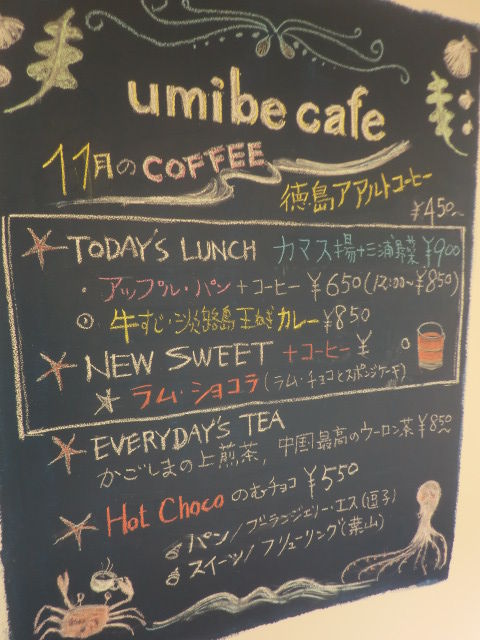 umibe cafe
11月のCOFFEE
徳島アアルトコーヒー
¥450~
TODAY'S LUNCH カマス揚+三浦野菜 ¥900
・アップル・パン+コーヒー ¥650(12:00~¥850)
牛すじ・淡路島玉ねぎカレー ¥850
NEW SWEET +コーヒー¥
ラム・ショコラ(ラム・チョコとスポンジケーキ)
EVERYDAY'S TEA
かごしまの上煎茶, 中国最高のウーロン茶 ¥850
Hot Choco のむチョコ ¥550
パン/ブーランジェリー・エス(逗子)
スイーツ/フリューリング(葉山)